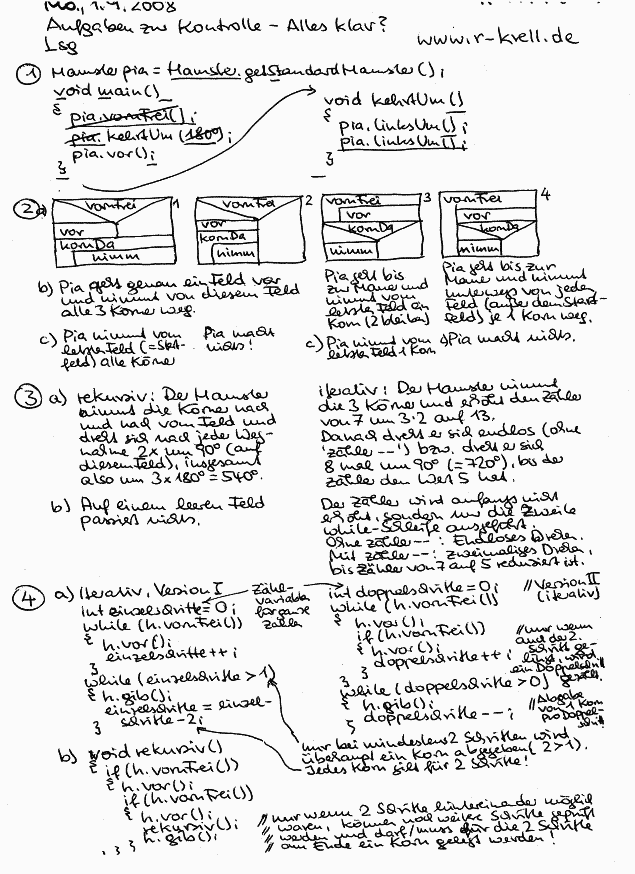 Mo., 1.9.2008
Aufgaben zur Kontrolle - Alles klar?
Lsg
www.r-krell.de
① Hamster pia = Hamster.getStandardHamster();
void main()
{ pia.vornFrei();
pia.kehrtUm(180°);
pia.vor();
}
void kehrtUm()
{ pia.linksUm();
pia.linksUm();
}
② a)
vornFrei 1
vor
kornDa
nimm
vornFrei 2
vor
kornDa
nimm
vornFrei 3
vor
kornDa
nimm
vornFrei 4
vor
kornDa
nimm
b) Pia geht genau ein Feld vor
und nimmt von diesem Feld
alle 3 Körner weg.
Pia geht bis
zur Mauer und
nimmt vom
letzten Feld ein
Korn (2 bleiben)
Pia geht bis zur
Mauer und nimmt
unterwegs von jedem
Feld (außer dem Start-
feld) je 1 Korn weg.
c) Pia nimmt vom
letzten Feld (=Start-
feld) alle Körner
Pia macht
nichts!
c) Pia nimmt vom
letzten Feld 1 Korn
Pia macht nichts.
③ a) rekursiv: Der Hamster
nimmt die Körner nach
und nach vom Feld und
dreht sich nach jeder Weg-
nahme 2x um 90° (auf
diesem Feld), insgesamt
also um 3x180° = 540°.
iterativ: Der Hamster nimmt
die 3 Körner und erhöht den Zähler
von 7 um 3·2 auf 13.
Danach dreht er sich endlos (ohne
'zähler--') bzw. dreht er sich
8 mal um 90° (=720°), bis der
Zähler den Wert 5 hat.
b) Auf einem leeren Feld
passiert nichts.
Der Zähler wird anfangs nicht
erhöht, sondern nur die zweite
while-Schleife ausgeführt.
Ohne zähler--: Endloses Drehen.
Mit zähler--: zweimaliges Drehen,
bis Zähler von 7 auf 5 reduziert ist.
④ a) Iterativ, Version I
int einzelschritte = 0;
while (h.vornFrei())
{ h.vor();
einzelschritte++;
}
while (einzelschritte > 1)
{ h.gib();
einzelschritte = einzel-
schritte-2;
}
Zähl-
variable
für ganze
Zahlen
int doppelschritte = 0; //Version II
while (h.vornFrei()) (iterativ)
{ h.vor();
if (h.vornFrei())
{ h.vor();
doppelschritte++;
}
}
//nur wenn
auch der 2.
Schritt ge-
lingt, wird
ein Doppelschritt
gezählt.
while (doppelschritte > 0)
{ h.gib();
doppelschritte--;
}
//Abgabe
von 1 Korn
pro Doppel-
schritt
nur bei mindestens 2 Schritten wird
überhaupt ein Korn abgegeben (2>1).
Jedes Korn gilt für 2 Schritte!
b) void rekursiv()
{ if (h.vornFrei())
{ h.vor();
if (h.vornFrei())
{ h.vor();
rekursiv();
h.gib();
} } }
// nur wenn 2 Schritte hintereinander möglich
// waren, können noch weitere Schritte geprüft
// werden und darf/muss für die 2 Schritte
// am Ende ein Korn gelegt werden!